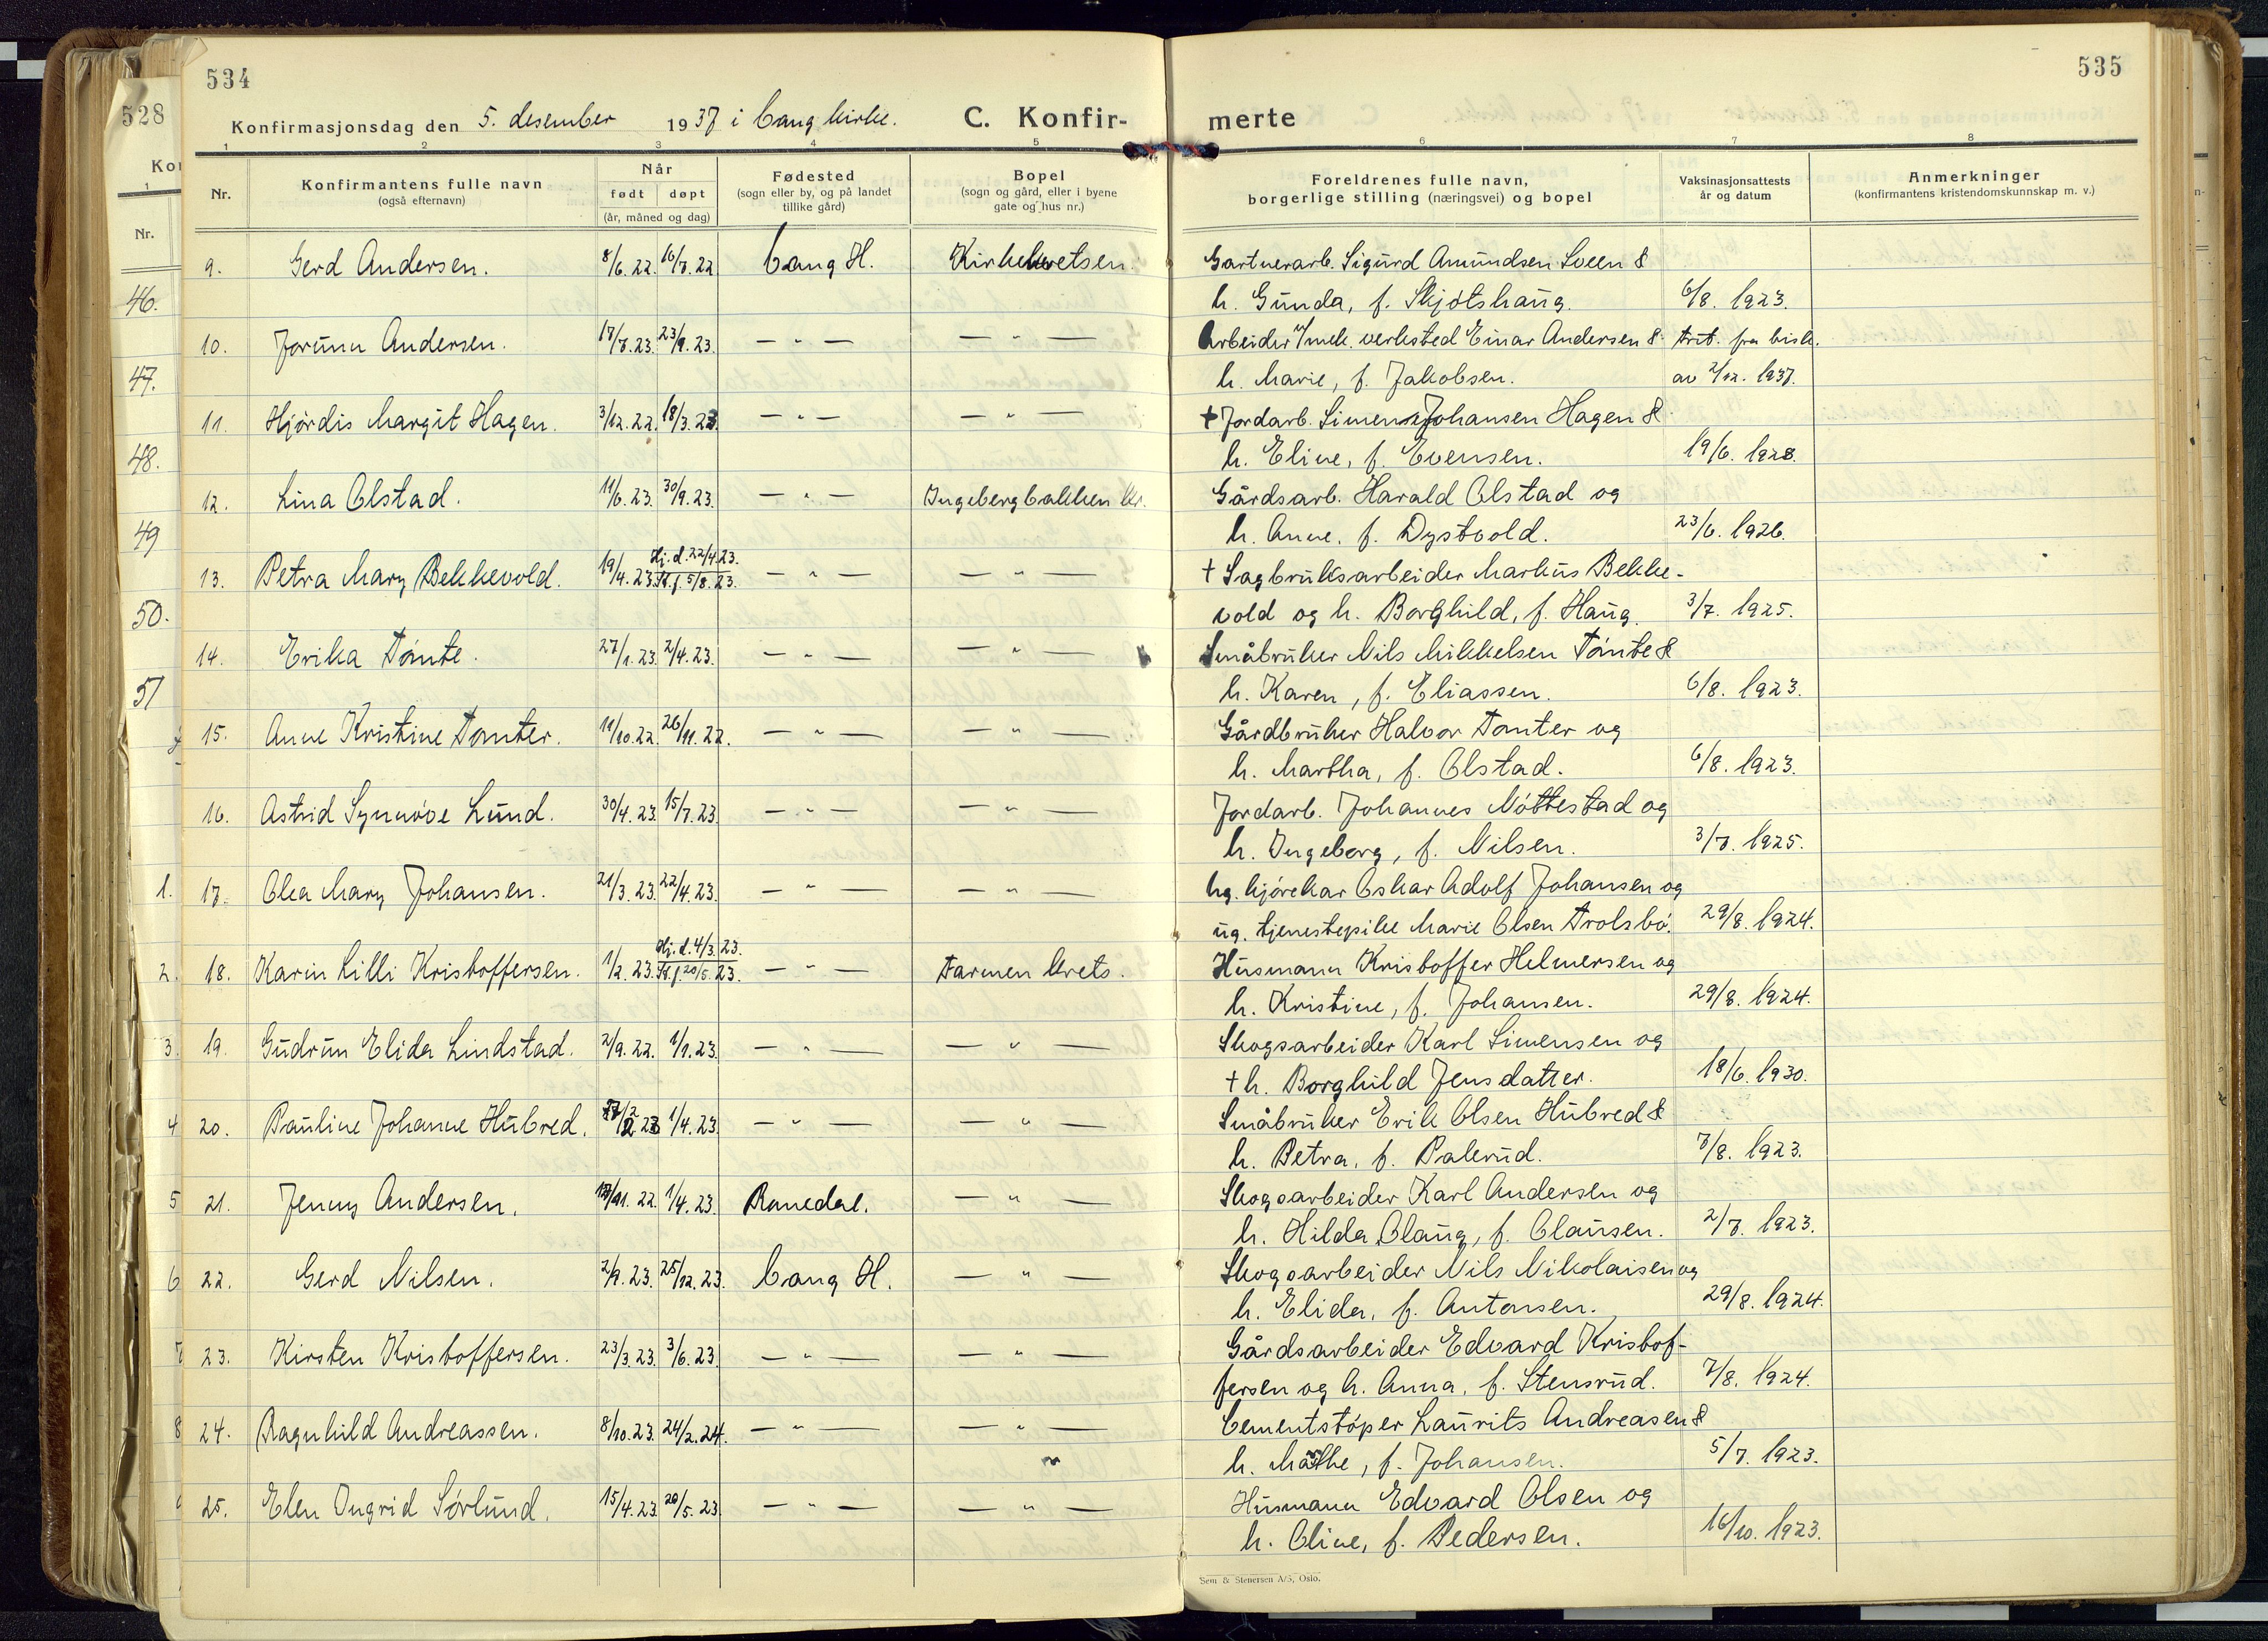 534
535
528
Konfirmasjonsdag den 5. desember 1937 i Vang kirke. C. Konfir-
merte
1 2 3 4 5
6 7 8
Nr.
Konfirmantens fulle navn
(også efternavn)
Når
født døpt
(år, måned og dag)
Fødested
(sogn eller by, og på landet
tillike gård)
Bopel
(sogn og gård, eller i byene
gate og hus nr.)
Foreldrenes fulle navn,
borgerlige stilling (næringsvei) og bopel
Vaksinasjonsattests
år og datum
Anmerkninger
(konfirmantens kristendomskunnskap m. v.)
Kon
1
Nr.
46.
47.
48.
49
50.
51
1.
2.
3.
4
5
6
7
8
9. Gerd Andersen. 8/6. 22. 16/7. 22 Vang H. Kirkekretsen. Gartnerarb. Sigurd Amundsen Sveen &
h. Gunda, f. Skjøtshaug. 6/8. 1923.
10. Jorunn Andersen. 17/7. 23. 23/9. 23. — " — — " — Arbeider v/ mek. verksted Einar Andersen & frit. fra bisk.
h. Marie, f. Jakobsen. av 2/12. 1937.
11. Hjørdis Margit Hagen. 3/12. 22. 18/3. 23. — " — — " — + Jordarb. Simen Johansen Hagen &
h. Eline, f. Evensen. 19/6. 1928.
12. Lina Olstad. 11/6. 23. 30/9. 23. — " — Ingebergbakken kr. Gårdsarb. Harald Olstad og
h. Anne, f. Dystvold. 23/6. 1926.
13. Petra Mary Bekkevold. 19/4. 23. Hj. d. 22/4. 23. St. f. 5/8. 23. — " — — " — + Sagbruksarbeider Markus Bekke-
vold og h. Borghild, f. Haug. 3/7. 1925.
14. Erika Tønte. 27/1. 23. 2/4. 23. — " — — " — Småbruker Nils Mikkelsen Tønte &
h. Karen, f. Eliassen. 6/8. 1923.
15. Anne Kristine Tomter. 11/10. 22. 26/11. 22. — " — — " — Gårdbruker Halvor Tomter og
h. Martha, f. Olstad. 6/8. 1923.
16. Astrid Synnøve Lund. 30/4. 23. 15/7. 23. — " — — " — Jordarb. Johannes Nøttestad og
h. Ingeborg, f. Nilsen. 3/7. 1925.
17. Olea Mary Johansen. 21/3. 23. 22/4. 23. — " — — " — ug. kjørekar Oskar Adolf Johansen og
ug. tjenestepike Marie Olsen Trolsbø. 29/8. 1924.
18. Karin Lilli Kristoffersen. 1/2. 23. Hj. d. 4/3. 23. St. f. 20/5. 23. — " — Farmen krets. Husmann Kristoffer Helmersen og
h. Kristine, f. Johansen. 29/8. 1924.
19. Gudrun Elida Lindstad. 2/9. 22. 1/1. 23. — " — — " — Skogsarbeider Karl Simensen og
+ h. Borghild Jensdatter. 18/6. 1930.
20. Pauline Johanne Hubred. 1/4. 23. — " — — " — Småbruker Erik Olsen Hubred &
h. Petra, f. Palerud. 7/8. 1923.
21. Jenny Andersen. /11. 22. 1/4. 23. Romedal. — " — Skogsarbeider Karl Andersen og
h. Hilda Olaug, f. Olausen. 2/7. 1923.
22. Gerd Nilsen. 2/9. 23. 25/12. 23. Vang H. — " — Skogsarbeider Nils Nikolaisen og
h. Elida, f. Antonsen. 29/8. 1924.
23. Kirsten Kristoffersen. 23/3. 23. 3/6. 23. — " — — " — Gårdsarbeider Edvard Kristof-
fersen og h. Anna, f. Stensrud. 7/8. 1924.
24. Ragnhild Andreassen. 8/10. 23. 24/2. 24. — " — — " — Cementstøper Laurits Andreasen &
h. Mathe, f. Johansen. 5/7. 1923.
25. Elen Ingrid Sørlund. 15/4. 23. 20/5. 23. — " — — " — Husmann Edvard Olsen og
h. Oline, f. Pedersen. 16/10. 1923.
Sem & Stenersen A/S, Oslo.